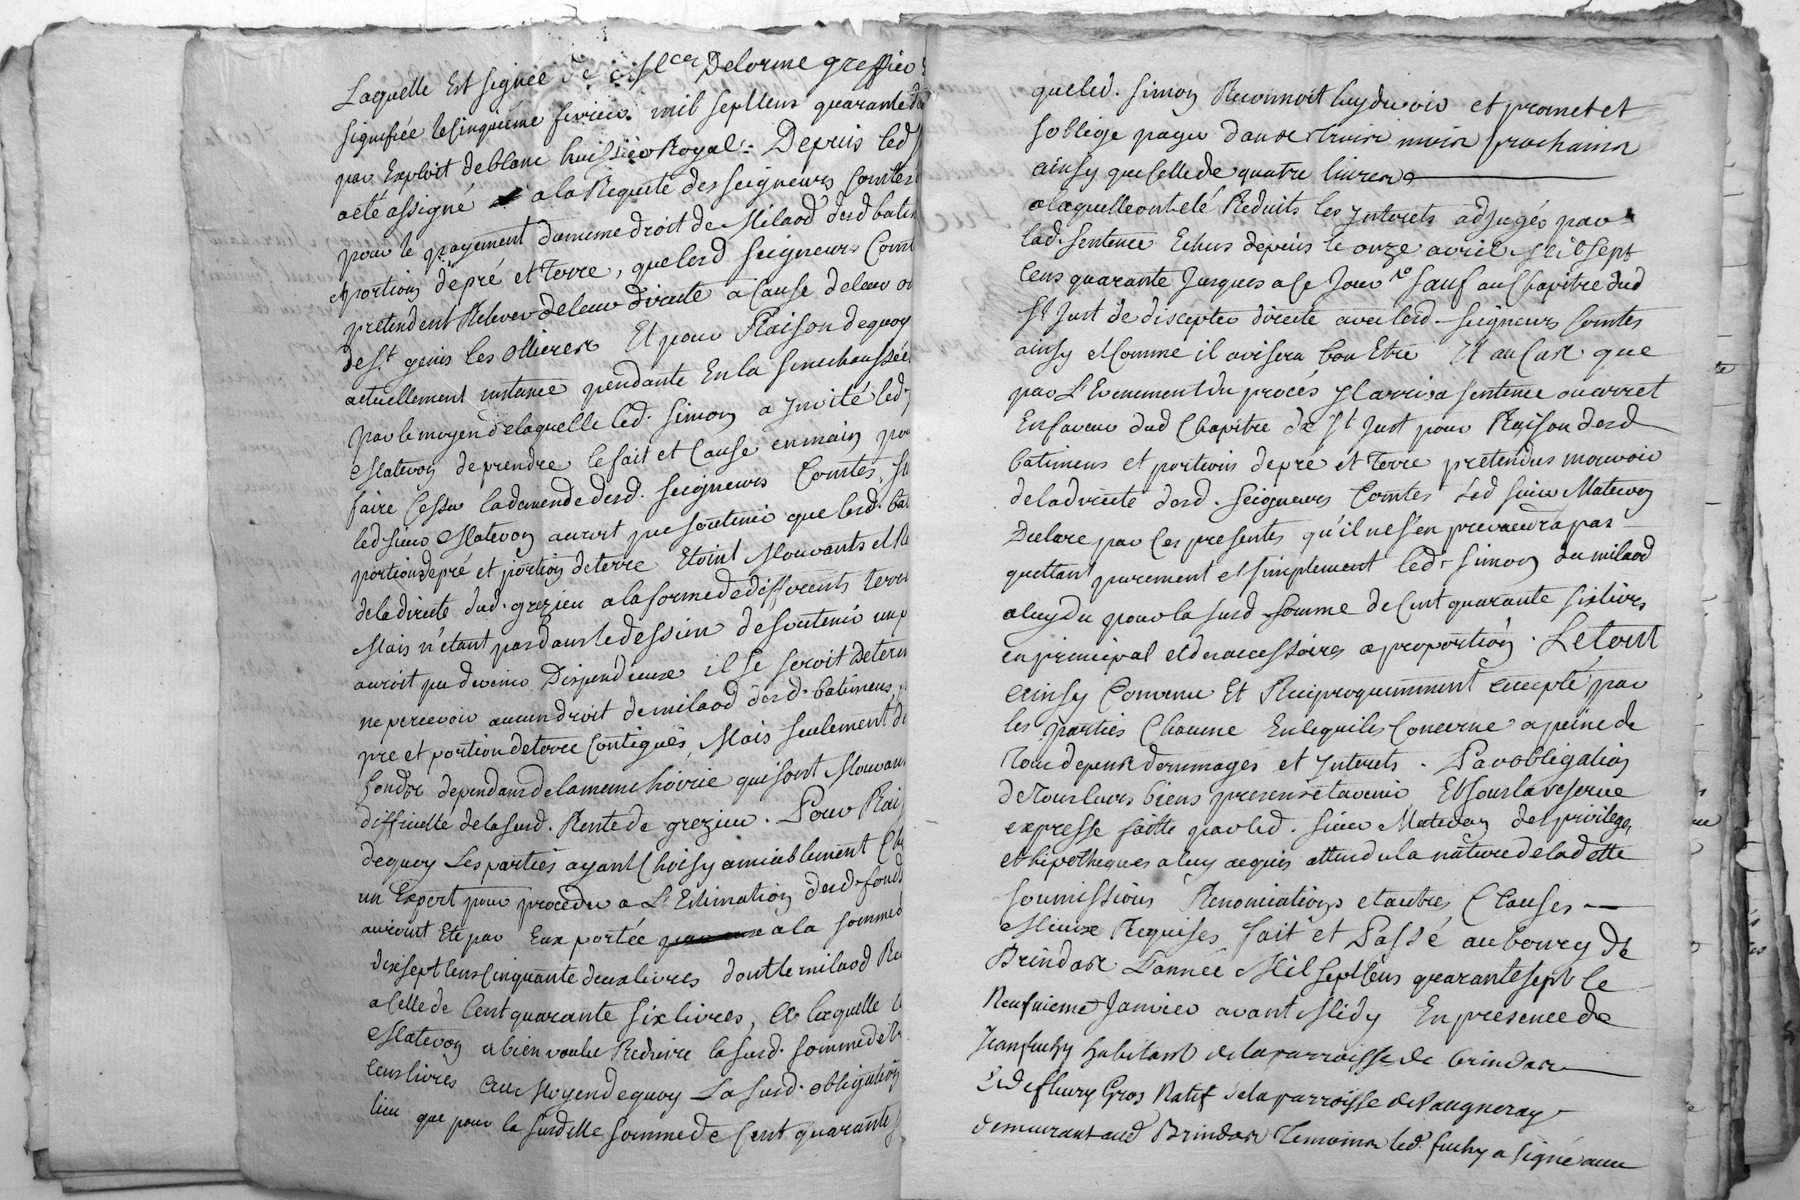 Laquelle Est signée de Delorme greffier
signifiée le cinquiéme fevrier mil sept cens quarante
par Exploit de blanc huissier Royal. Depuis led
a eté assigné a la Requete des seigneurs Comtes
pour le payement dameme droit de Milaod desd batim
portion de pré et Terre, que lesd seigneurs Comt
pretendent Relever de leur directe a Cause de leur
de St genis les ollieres Et pour Raison de quoy
actuellement instance pendante En la senechaussée
par le moyen de laquelle led. Simon a Invité led
Matevon de prendre le fait et Cause en main pou
faire Cesser la demende desd. seigneurs Comtes,
led sieur Matevon auroit pu soutenir que lesd. ba
portion de pré et portion de terre Etoint Mouvants et
de la directe dud. grezieu a la forme de differents terr
Mais n'étant pas dans le dessein de soutenir un p
auroit pu devenir Dispendieux il se seroit Determ
ne percevoir aucun droit de milaod desd. batimens,
pre et portion de terre Contigues, Mais seulement d
fonds dependans de la meme hoirie qui sont Mouvan
difficulte de la susd. Rente de grezieu. Pour Rai
de quoy Les parties ayant Choisy amiablement
un Expert pour proceder a L'Estimation desd. fond
auroint Eté par Eux portée a la somme d
dix sept cens Cinquante deux livres dont le milaod Re
a Celle de Cent quarante six livres, a laquelle
Matevon a bien voulu Reduire la susd. somme de
cens livres au Moyen de quoy La susd. obligation
lieu que pour la susditte somme de Cent quarante
que led. Simon Reconnoit luy devoir et promet et
soblige payer dans trois mois prochains
ainsy que Celle de quatre livres
a laquelle ont eté Reduits les Interets adjugés par
lad. sentence Echus depuis le onze avril Mil sept
Cens quarante Jusques a Ce Jour Sauf au Chapitre dud
St Just de discepter directe avec lesd. seigneurs Comtes
ainsy et Comme il avisera bon Etre Et au Cas que
par L'Evenement du procés Il arriva sentence ou arret
En faveur dud Chapitre de St Just pour Raison desd
batimens et portions de pré et Terre pretendus mouvoir
de la directe desd. Seigneurs Comtes Led sieur Matevon
Declare par Ces presentes qu'il ne s'en prevaudra pas
quettant purement et simplement led. Simon du milaod
a luy du pour la susd somme de Cent quarante six livres
en principal et des accessoires a proportion. Le tout
ainsy Convenu Et Reciproquemment accepté par
les parties Chacune En ce qui les Concerne a peine de
tous depens dommages et Interets. Par obligation
de Tous leurs biens presens et avenir Et sous la reserve
expresse faitte par led. sieur Matevon des privileges
et hipotheques a luy acquis attendu la nature de la dette
soumissions Renonciations et autres Clauses
Mieux Requises fait et Passé au bourg de
Brindas L'année Mil sept cens quarante sept le
Neufvieme Janvier avant Midy En presence de
Jean fuchy habitant de la parroisse de brindas
Et de fleury Gros Natif de la parroisse de Vaugneray
demeurant aud Brindas Temoins led. fuchy a signé avec